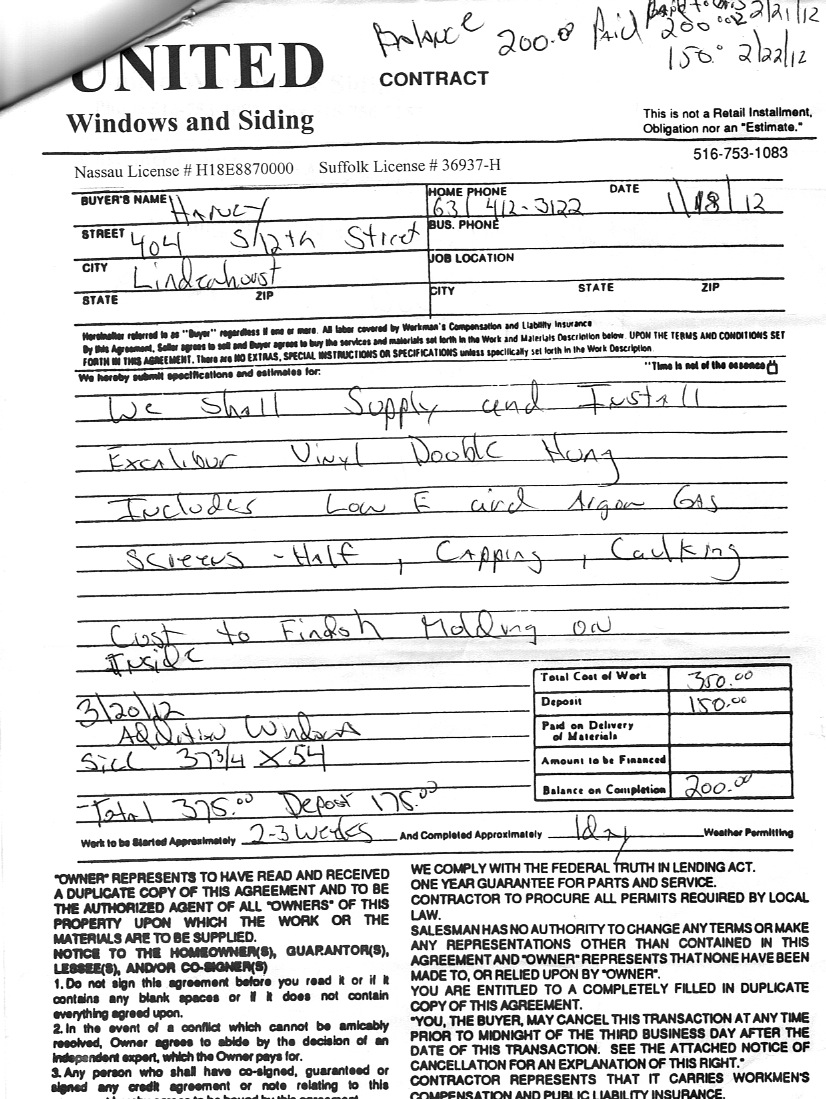 Balance 200.00 Paid
200.00 2/21/12
150.00 2/22/12
UNITED
CONTRACT
Windows and Siding
This is not a Retail Installment,
Obligation nor an "Estimate."
516-753-1083
Nassau License # H18E8870000 Suffolk License # 36937-H
BUYER'S NAME
HOME PHONE 631 412-3122
DATE 1/18/12
STREET 404 S/12th Street
BUS. PHONE
CITY Lindenhurst
JOB LOCATION
STATE ZIP
CITY STATE ZIP
Hereinafter referred to as "Buyer" regardless if one or more. All labor covered by Workman's Compensation and Liability Insurance
By this Agreement, Seller agrees to sell and Buyer agrees to buy the services and materials set forth in the Work and Materials Description below. UPON THE TERMS AND CONDITIONS SET
FORTH IN THIS AGREEMENT. There are NO EXTRAS, SPECIAL INSTRUCTIONS OR SPECIFICATIONS unless specifically set forth in the Work Description.
We hereby submit specifications and estimates for:
"Time is not of the essence
We Shall Supply and Install
Excalibur Vinyl Double Hung
Includes Low E and Argon Gas
Screens - Half, Capping, Caulking
Cust to Finish Molding on
Inside
Total Cost of Work 350.00
Deposit 150.00
Paid on Delivery
of Materials
Amount to be Financed
Balance on Completion 200.00
3/20/12
Addition Window
37 3/4 X 54
Total 375.00 Deposit 175.00
Work to be Started Approximately 2-3 Weeks And Completed Approximately 1 day Weather Permitting
"OWNER" REPRESENTS TO HAVE READ AND RECEIVED
A DUPLICATE COPY OF THIS AGREEMENT AND TO BE
THE AUTHORIZED AGENT OF ALL "OWNERS" OF THIS
PROPERTY UPON WHICH THE WORK OR THE
MATERIALS ARE TO BE SUPPLIED.
NOTICE TO THE HOMEOWNER(S), GUARANTOR(S),
LESSEE(S), AND/OR CO-SIGNER(S)
1. Do not sign this agreement before you read it or if it
contains any blank spaces or if it does not contain
everything agreed upon.
2. In the event of a conflict which cannot be amicably
resolved, Owner agrees to abide by the decision of an
independent expert, which the Owner pays for.
3. Any person who shall have co-signed, guaranteed or
signed any credit agreement or note relating to this
WE COMPLY WITH THE FEDERAL TRUTH IN LENDING ACT.
ONE YEAR GUARANTEE FOR PARTS AND SERVICE.
CONTRACTOR TO PROCURE ALL PERMITS REQUIRED BY LOCAL
LAW.
SALESMAN HAS NO AUTHORITY TO CHANGE ANY TERMS OR MAKE
ANY REPRESENTATIONS OTHER THAN CONTAINED IN THIS
AGREEMENT AND "OWNER" REPRESENTS THAT NONE HAVE BEEN
MADE TO, OR RELIED UPON BY "OWNER".
YOU ARE ENTITLED TO A COMPLETELY FILLED IN DUPLICATE
COPY OF THIS AGREEMENT.
"YOU, THE BUYER, MAY CANCEL THIS TRANSACTION AT ANY TIME
PRIOR TO MIDNIGHT OF THE THIRD BUSINESS DAY AFTER THE
DATE OF THIS TRANSACTION. SEE THE ATTACHED NOTICE OF
CANCELLATION FOR AN EXPLANATION OF THIS RIGHT."
CONTRACTOR REPRESENTS THAT IT CARRIES WORKMEN'S
COMPENSATION AND PUBLIC LIABILITY INSURANCE.